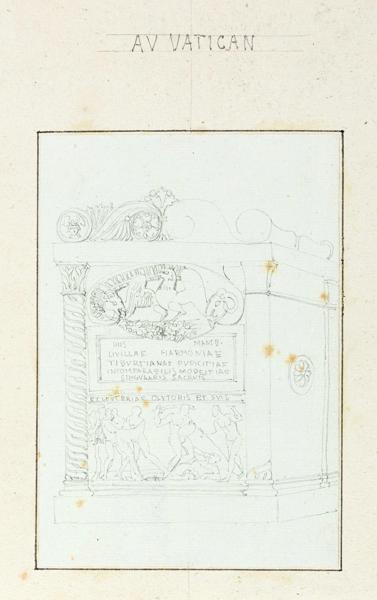 AU VATICAN
DIIS MANIB·
LIVILLAE HARMONIAE
TIBURTIANAE PUDICITIAE
INCOMPARABILIS MODESTIAE
SINGULARIS SACRUM
ET SVIS